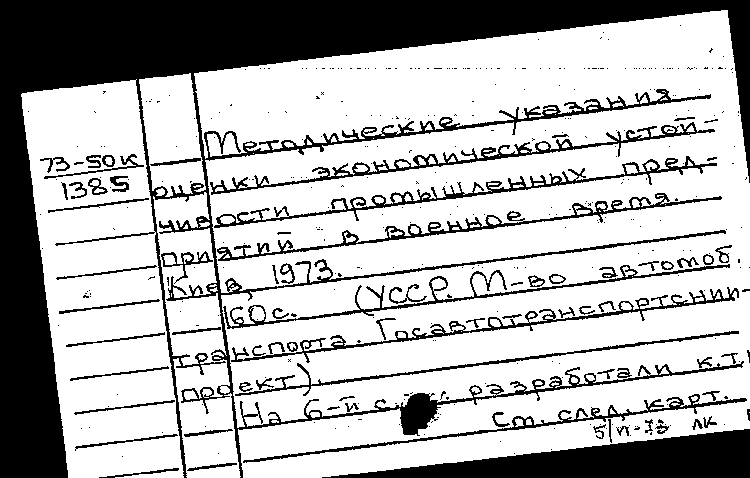 73-50к
1385
Методические указания
оценки экономической устой-
чивости промышленных пред-
приятий в военное время.
Киев, 1973.
160с. (УССР. М-во автомоб.
транспорта. Госавтотранспортснии-
проект).
На 6-й с. разработали к.т.
См. след. карт.
ЛК